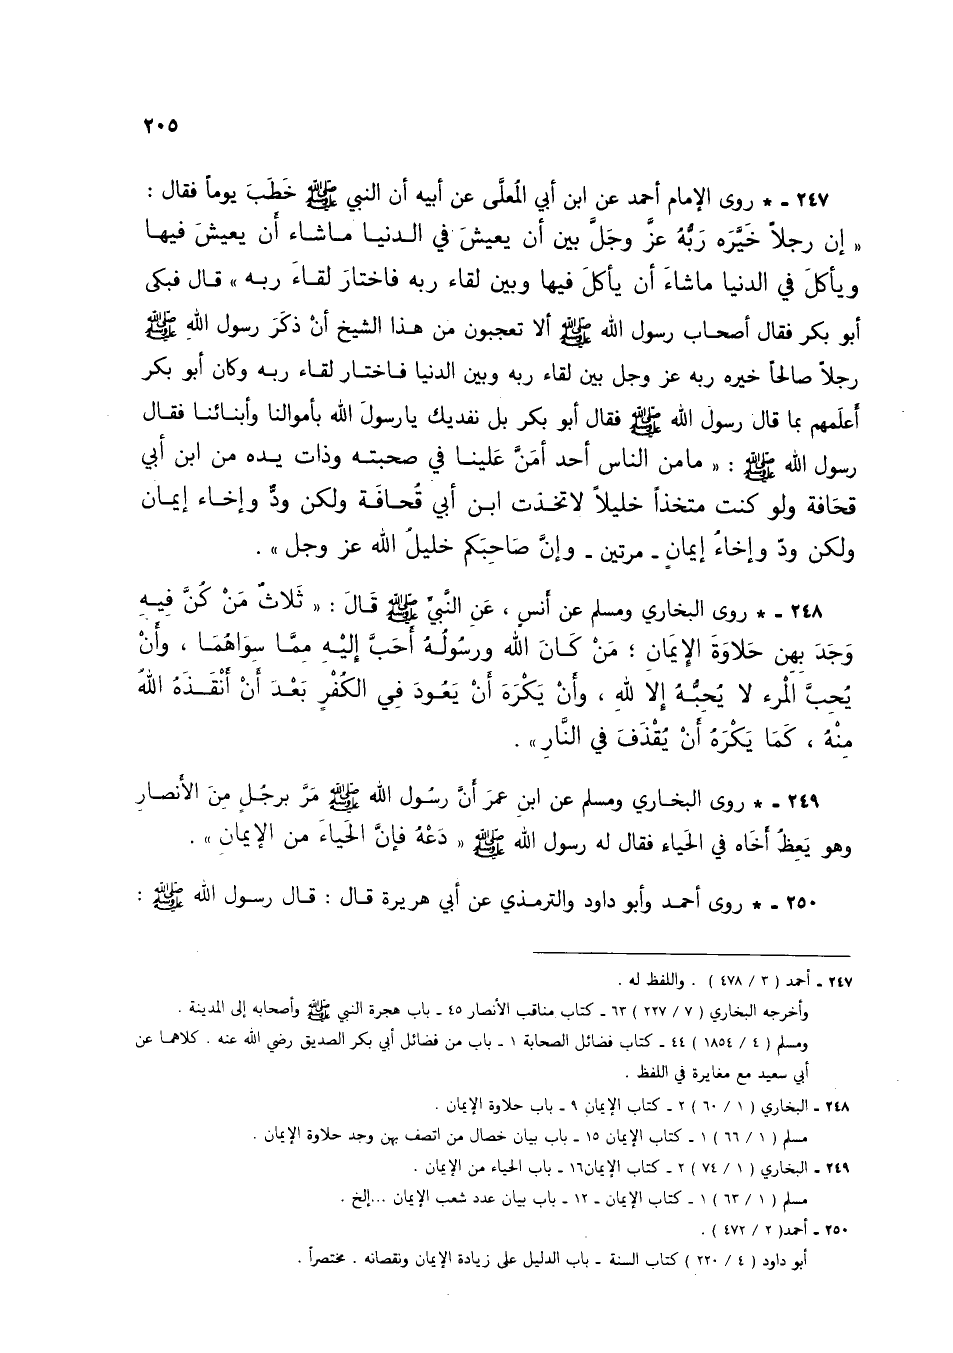 ٢٠٥
٢٤٧ ـ * روى الإمام أحمد عن ابن أبي المُعلَّى عن أبيه أن النبي ﷺ خَطَبَ يوماً فقال :
« إن رجلاً خَيَّرَه رَبُّهُ عزَّ وجَلَّ بين أن يعيشَ في الدنيا ماشاء أن يعيشَ فيها
ويأكلَ في الدنيا ماشاءَ أن يأكلَ فيها وبين لقاء ربه فاختارَ لقاءَ ربه » قال فبكى
أبو بكر فقال أصحاب رسول الله ﷺ ألا تعجبون من هذا الشيخ أنْ ذكَرَ رسول اللهِ ﷺ
رجلاً صالحاً خيره ربه عز وجل بين لقاء ربه وبين الدنيا فاختار لقاء ربه وكان أبو بكر
أعلَمهم بما قال رسول الله ﷺ فقال أبو بكر بل نفديك يارسولَ الله بأموالنا وأبنائنا فقال
رسول الله ﷺ : « مامن الناس أحد أمَنَّ عَلينا في صحبته وذات يده من ابن أبي
قحَافة ولو كنت متخذاً خليلاً لاتخذت ابن أبي قُحافَة ولكن ودٌّ وإخاء إيمان
ولكن ودّ وإخاءُ إيمانٍ ـ مرتين ـ وإنَّ صَاحِبَكم خليلُ الله عز وجل » .
٢٤٨ ـ * روى البخاري ومسلم عن أنسٍ ، عَنِ النَّبيِّ ﷺ قَالَ : « ثَلاثٌ مَنْ كُنَّ فِيهِ
وَجَدَ بِهِن حَلاوَةَ الإيمَانِ ؛ مَنْ كَانَ اللهُ ورسُولُهُ أَحَبَّ إلَيْهِ مِمَّا سِوَاهُمَا ، وأَنْ
يُحِبَّ المْرء لا يُحبُّهُ إلا للهِ ، وأَنْ يَكْرَهَ أَنْ يَعُودَ فِي الكُفْرِ بَعْدَ أَنْ أَنْقَذَهُ اللهُ
مِنْهُ ، كَمَا يَكْرَهُ أَنْ يُقْذَفَ في النَّارِ » .
٢٤٩ ـ * روى البخاري ومسلم عن ابنِ عمرَ أنَّ رسُول الله ﷺ مَرَّ برجُلٍ مِنَ الأنصارِ
وهو يَعِظُ أخَاه في الحَياء فقال له رسول الله ﷺ « دَعْهُ فإنَّ الحَياءَ من الإيمانِ » .
٢٥٠ ـ * روى أحمد وأبو داود والترمذي عن أبي هريرة قال : قال رسول الله ﷺ :
٢٤٧ ـ أحمد ( ٣ / ٤٧٨ ) . واللفظ له .
وأخرجه البخاري ( ٧ / ٢٢٧ ) ٦٣ ـ كتاب مناقب الأنصار ٤٥ ـ باب هجرة النبي ﷺ وأصحابه إلى المدينة .
ومسلم ( ٤ / ١٨٥٤ ) ٤٤ ـ كتاب فضائل الصحابة ١ ـ باب من فضائل أبي بكر الصديق رضي الله عنه . كلاهما عن
أبي سعيد مع مغايرة في اللفظ .
٢٤٨ ـ البخاري ( ١ / ٦٠ ) ٢ ـ كتاب الإيمان ٩ ـ باب حلاوة الإيمان .
مسلم ( ١ / ٦٦ ) ١ ـ كتاب الإيمان ١٥ ـ باب بيان خصال من اتصف بهن وجد حلاوة الإيمان .
٢٤٩ ـ البخاري ( ١ / ٧٤ ) ٢ ـ كتاب الإيمان١٦ ـ باب الحياء من الإيمان .
مسلم ( ١ / ٦٣ ) ١ ـ كتاب الإيمان ـ ١٢ ـ باب بيان عدد شعب الإيمان ...إلخ .
٢٥٠ ـ أحمد( ٢ / ٤٧٢ ) .
أبو داود ( ٤ / ٢٢٠ ) كتاب السنة ـ باب الدليل على زيادة الإيمان ونقصانه . مختصراً .